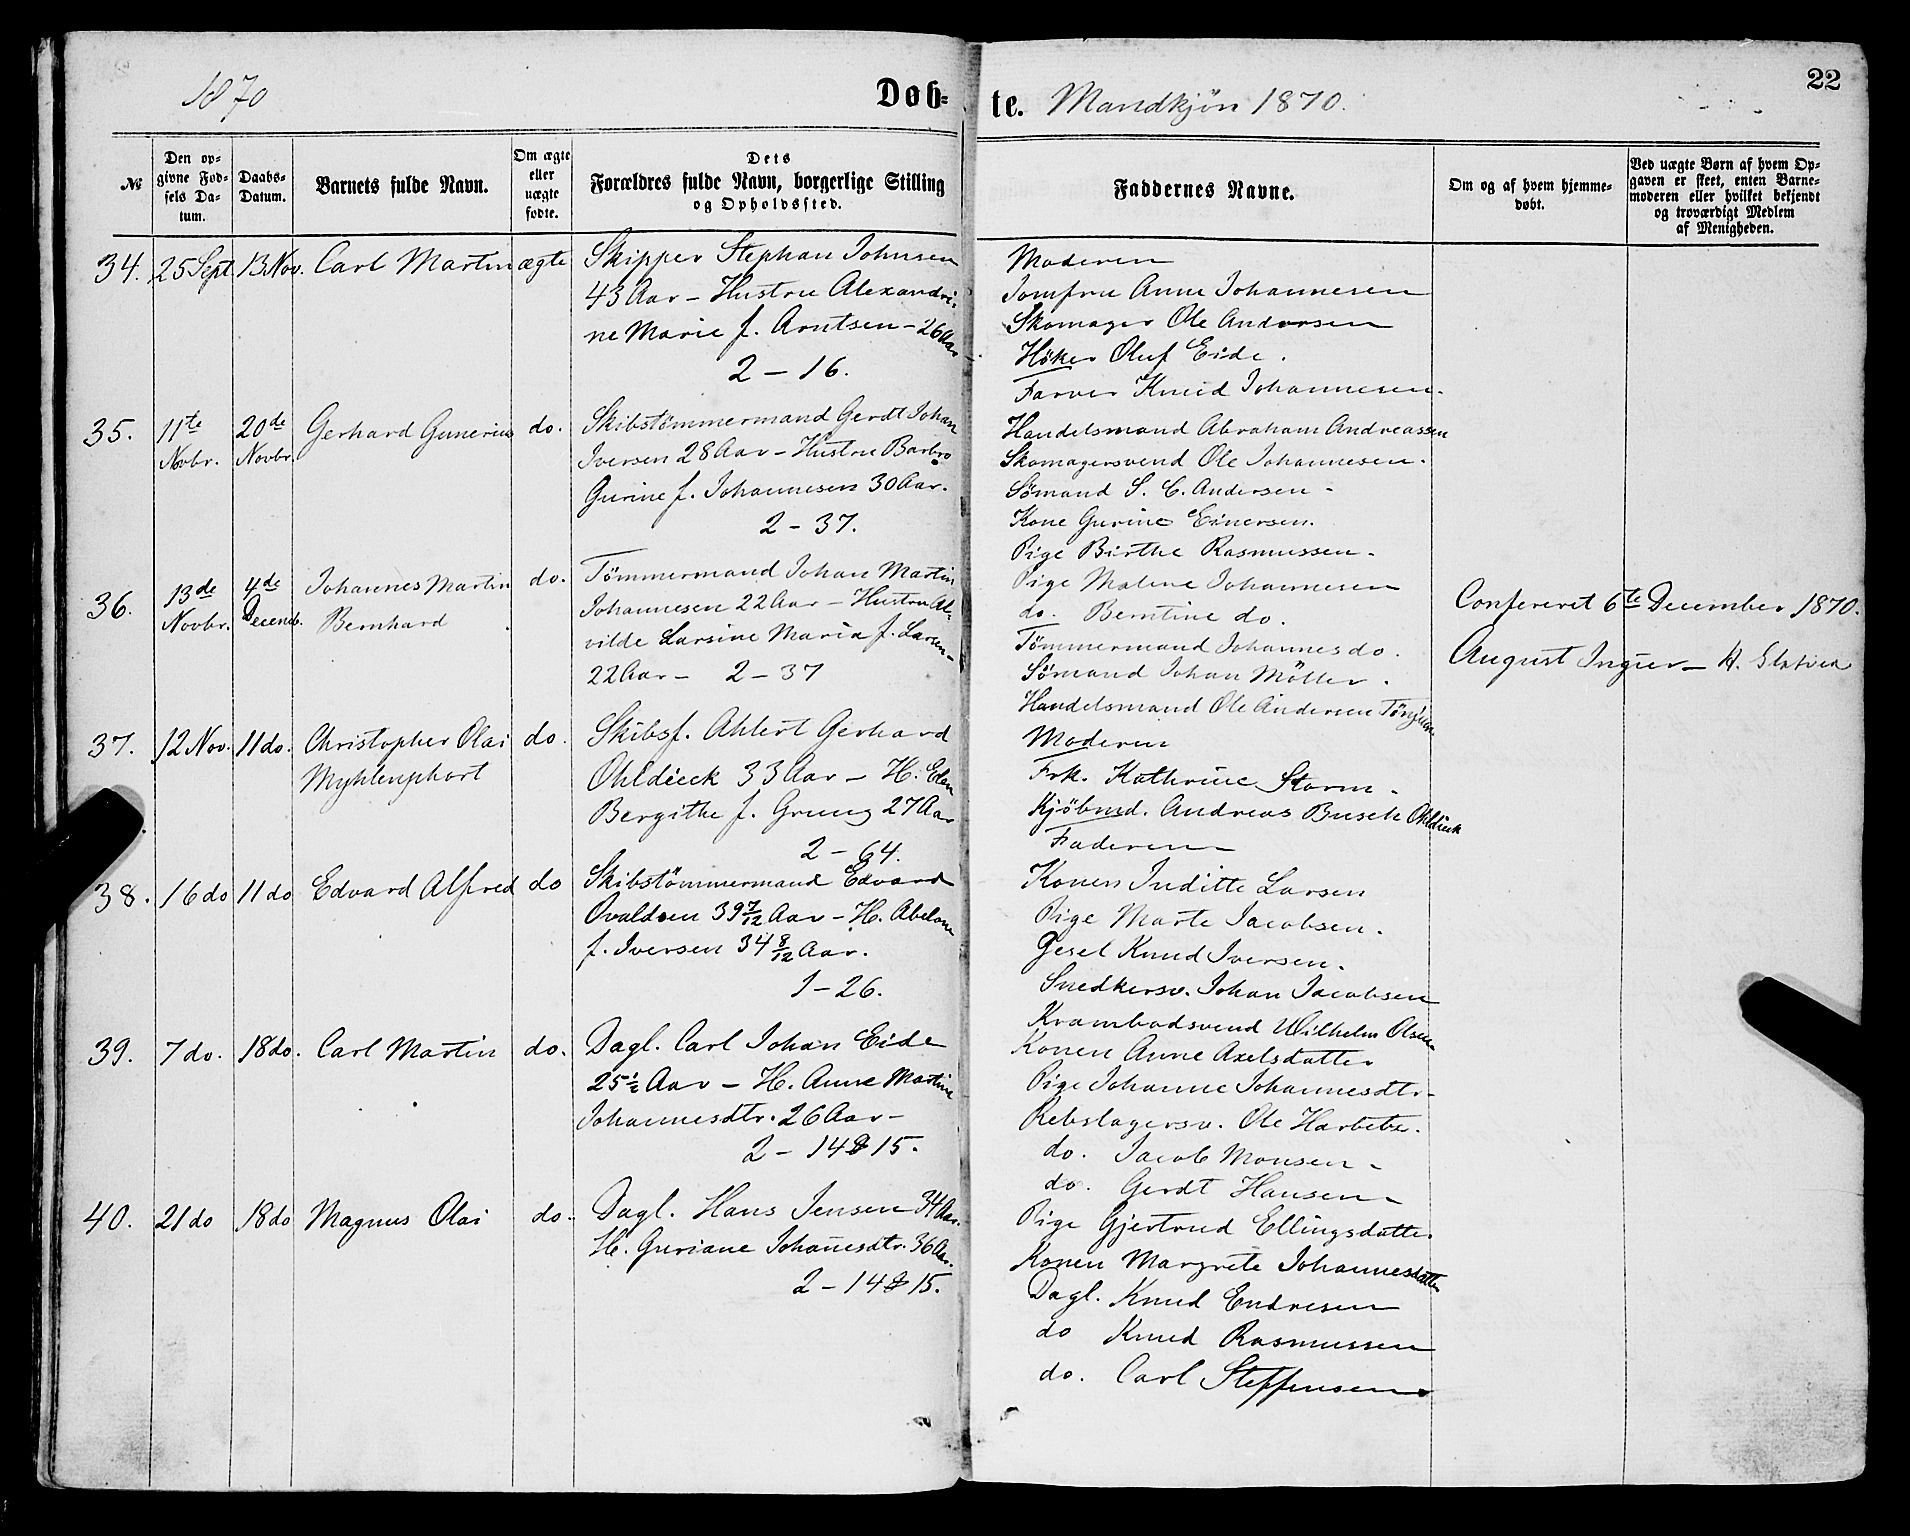 1870
Døb-
№
Den op-
givne Fød-
sels Da-
tum.
Daabs-
Datum.
Barnets fulde Navn.
Om ægte
eller
uægte
fødte.
Dets
Forældres fulde Navn, borgerlige Stilling
og Opholdssted.
34. 25 Sept. 13 Nov. Carl Martin ægte Skipper Stephan Johnsen
43 Aar – Hustru Alexandri-
ne Marie f. Arntsen – 26 Aar –
2 – 16.
35. 11te Novbr. 20de Novbr. Gerhard Gunerius do. Skibstömmermand Gerdt Johan
Iversen 28 Aar – Hustru Barbro
Gurine f. Johannesen 30 Aar.
2 – 37.
36. 13de Novbr. 4de Decemb. Johannes Martin do. Tömmermand Johan Martin
Bernhard Johannesen 22 Aar – Hustru Al-
vilde Larsine Maria f. Larsen –
22 Aar – 2 – 37
37. 12 Nov. 11 do. Christopher Olai do. Skibsf. Ahlert Gerhard
Myhlenphort Ohldieck 33 Aar – H. Elen
Bergithe f. Grung 27 Aar
2 – 64.
38. 16 do 11 do Edvard Alfred do Skibstömmermand Edvard
Ovaldsen 39 7/12 Aar – H. Abelone
f. Iversen 34 8/12 Aar.
1 – 26.
39. 7 do. 18 do. Carl Martin do. Dagl. Carl Johan Eide
25 1/2 Aar – H. Anne Martine
Johannesdtr. 26 Aar –
2 – 14 & 15.
40. 21 do 18 do Magnus Olai do. Dagl. Hans Jensen 34 Aar.
H. Guriane Johanesdtr. 36 Aar.
2 – 14 & 15.
te. Mandkjön 1870.
22
Faddernes Navne.
Om og af hvem hjemme-
døbt.
Ved uægte Børn af hvem Op-
gaven er skeet, enten Barne-
moderen eller hvilket bekjendt
og troværdigt Medlem
af Menigheden.
Moderen
Jomfru Anne Johannesen
Skomager Ole Andersen
Höker Oluf Eide.
Farver Knud Johannesen.
Handelsmand Abraham Andreassen
Skomagersvend Ole Johannesen.
Sömand S. C. Andersen –
Kone Gurine Einersen.
Pige Birthe Rasmussen –
Pige Malene Johannesen
do. Berntine do.
Tömmermand Johannes do.
Sömand Johan Möller.
Handelsmand Ole Andersen
Confereret 6te December 1870.
August Ingier –
Moderen
Frk. Kathrine Storm –
Kjöbmd. Andreas Busch Ohldieck
Faderen –
Konen Juditte Larsen
Pige Marte Jacobsen.
Gesel Knud Iversen.
Snedkersv. Johan Jacobsen
Krambodsvend Wilhelm Olsen
Konen Anne Axelsdatter
Pige Johanne Johannesdtr –
Rebslagersv. Ole
do. Jacob Monsen –
do. Gerdt Hansen –
Pige Gjertrud Ellingsdatter.
Konen Margrete Johannesdatter
Dagl. Knud Endresen
do Knud Rasmussen
do. Carl Steffensen